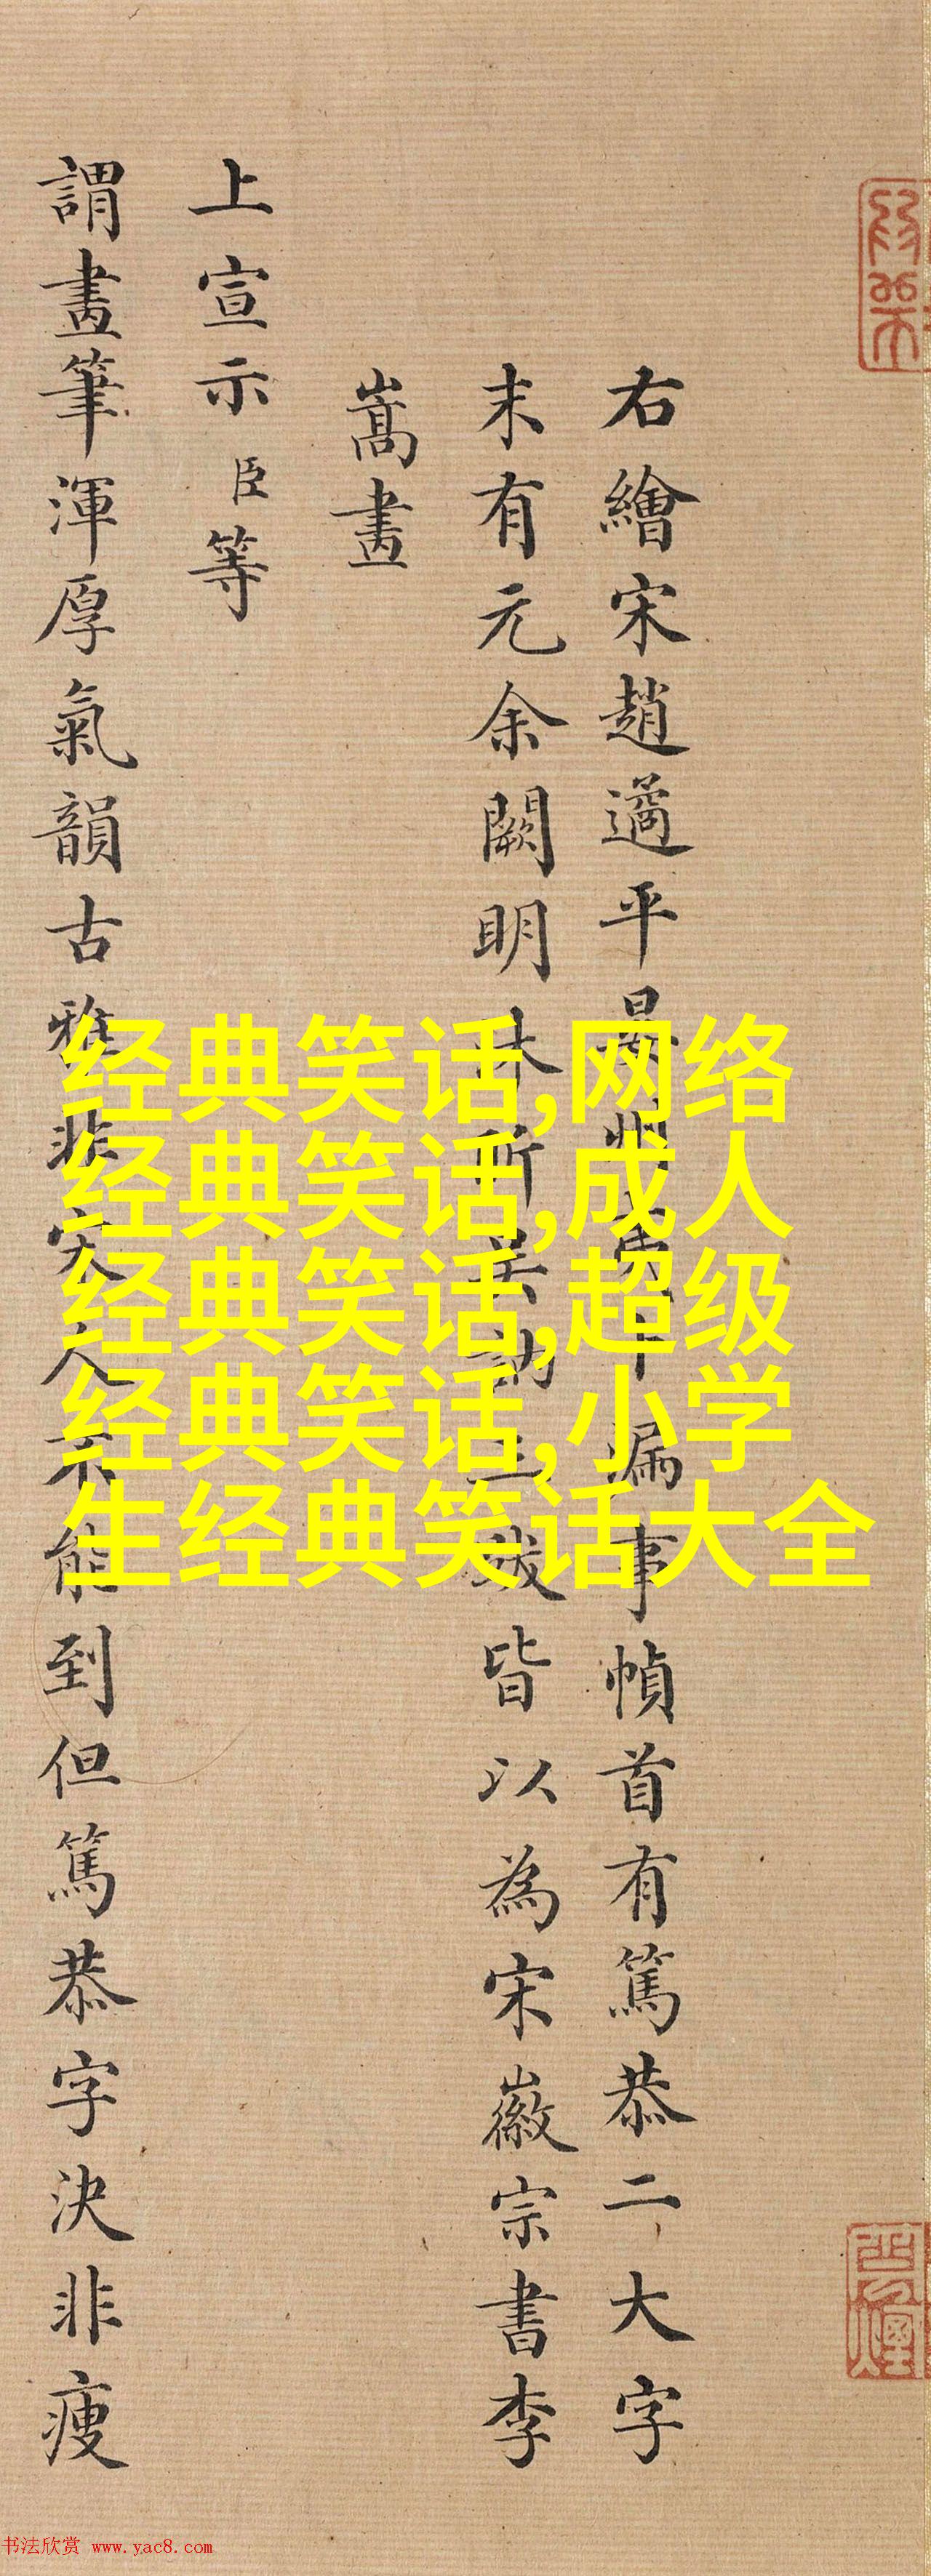 右繪宋趙遹平晏州蠻 漏事幀首有篤恭二大字
末有元余闕明林 三跋皆以為宋徽宗書李
嵩畫
上宣示臣等
謂畫筆渾厚氣韻古雅非宋人不能到但篤恭字決非瘦
经典笑话,网络
经典笑话,成人
经典笑话,超级
经典笑话,小学
生经典笑话大全
书法欣赏 www.yac8.com